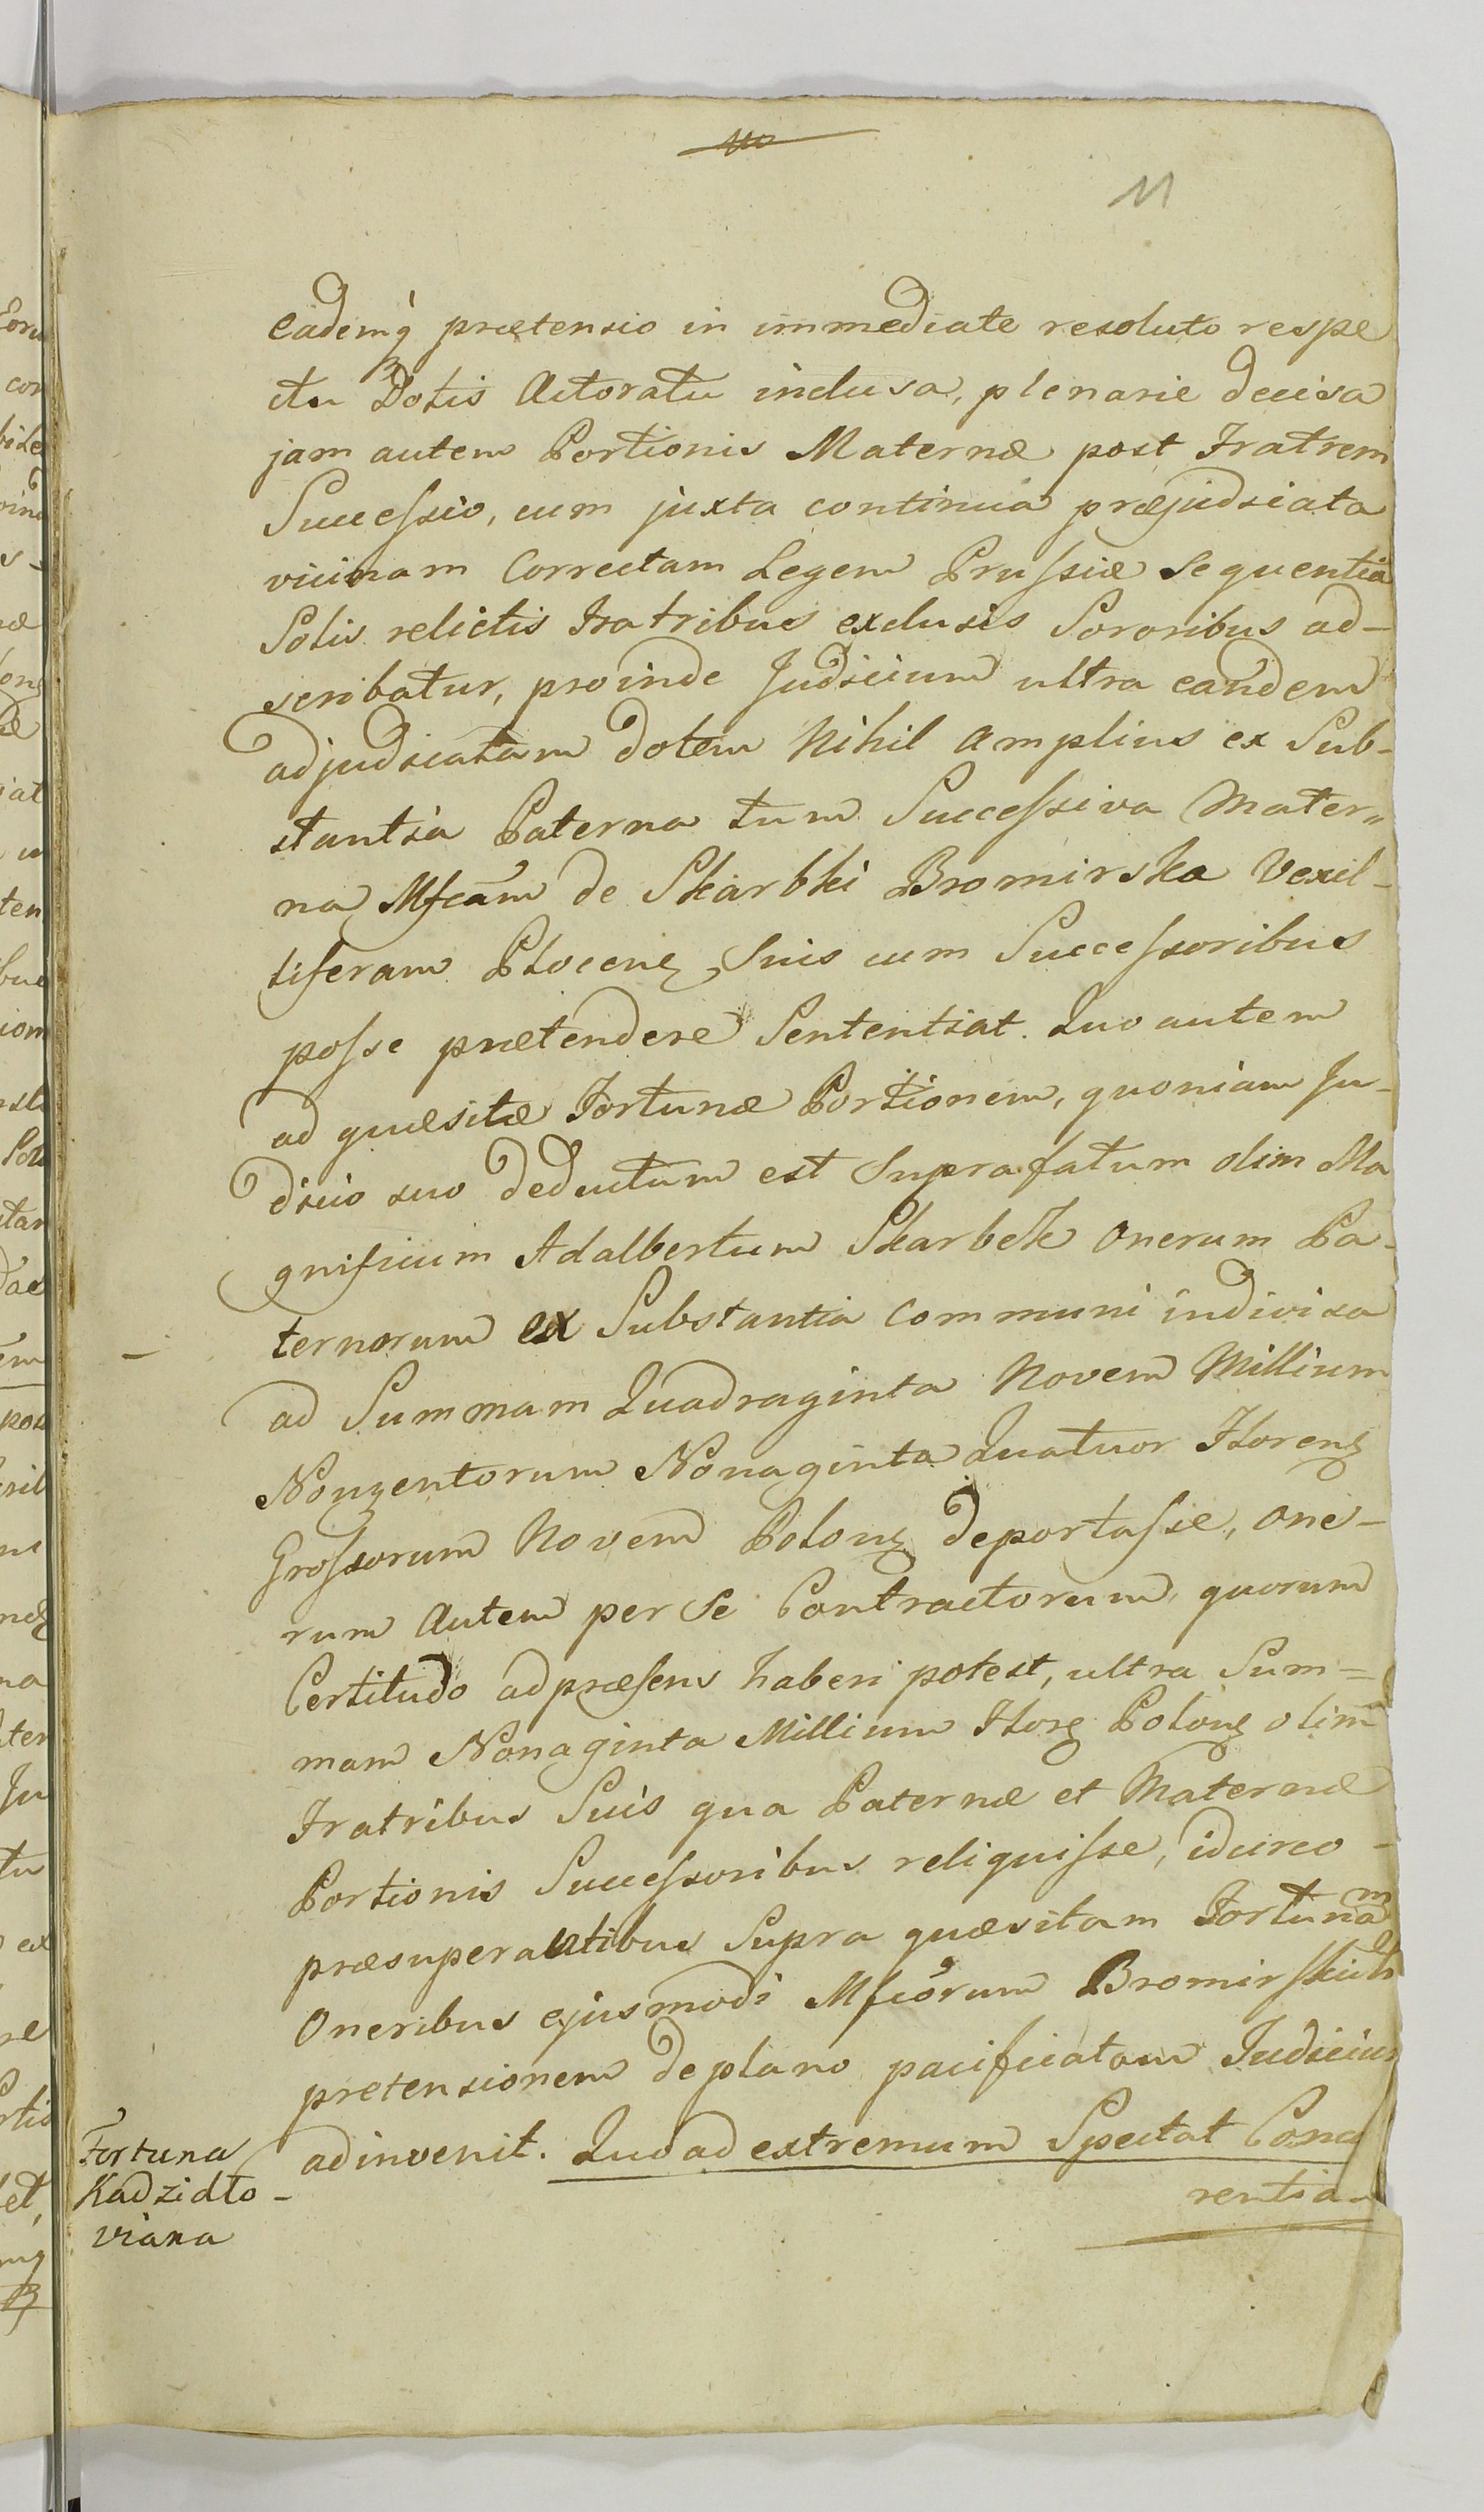 11
eademq́ prætensio in immediate resoluto respe
ctu Dotis Actoratu inclusa, plenarie decisa
jam autem Portionis Maternæ post Fratrem
Successio, cum juxta continua præjudiciata
vicinam Correctam Legem Prussiæ Sequentia
Solis relictis Fratribus exclusis Sororibus ad-
scribatur, proinde Judicium ultra eandem
adjudicatam dotem Nihil amplius ex Sub-
stantia Paterna tum Successiva Mater„
na Mfcam de Skarbki Bromirska Vexil-
liferam Plocen, Suis cum Successoribus
posse prætendere Sententiat. Quo autem
ad quæsitæ Fortunæ Portionem, quoniam Ju-
dicio suo deductum est Suprafatum olim Ma
gnificum Adalbertum Skarbek Onerum Pa-
ternorum ex Substantia Communi indivisa
ad Summam Quadraginta Novem Millium
Nongentorum Nonaginta Quatuor Floren
Grossorum Novem Polon deportasse, one-
rum autem per se Contractorum, quorum
Certitudo ad præsens haberi potest, ultra Sum=
mam Nonaginta Millium Flor Polon olim
Fratribus Suis qua Paternæ et Maternæ
Portionis Successoribus reliquisse, idcirco-
præsuperantibus Supra quæsitam Fortunam
Oneribus ejusmodi Mfcorum Bromirskich
pretensionem de plano pacificatam Judicium
adinvenit. Quo ad extremum Spectat Concu
rentiam
Fortuna
Kadzidło-
viana